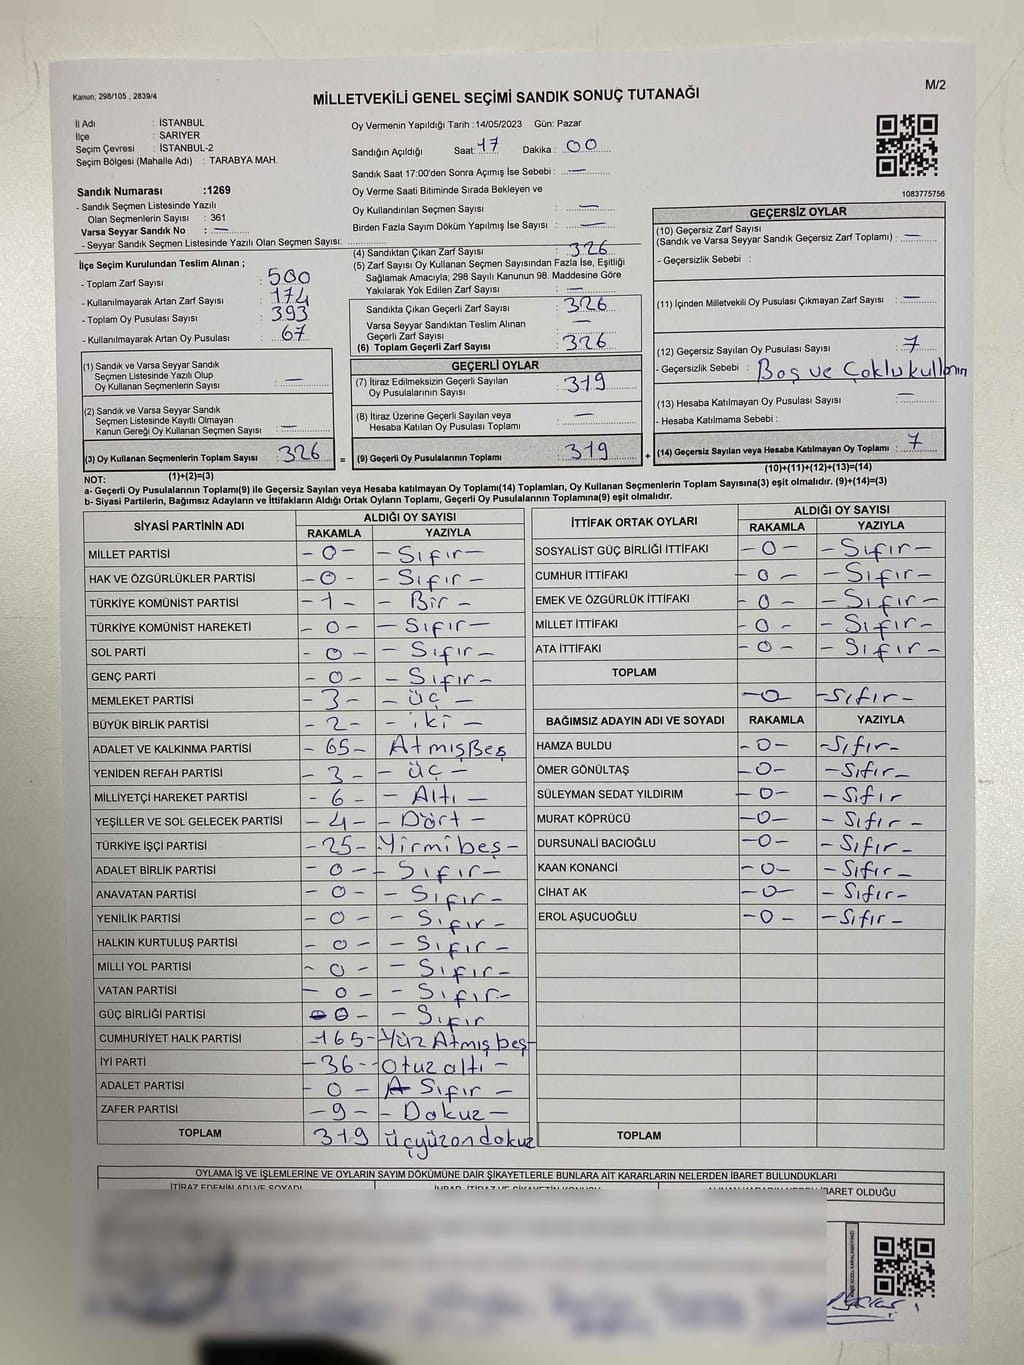 Kanun; 298/105 , 2839/4
M/2
MİLLETVEKİLİ GENEL SEÇİMİ SANDIK SONUÇ TUTANAĞI
İl Adı : İSTANBUL
İlçe : SARIYER
Seçim Çevresi : İSTANBUL-2
Seçim Bölgesi (Mahalle Adı) : TARABYA MAH.
Sandık Numarası :1269
- Sandık Seçmen Listesinde Yazılı
Olan Seçmenlerin Sayısı : 361
Varsa Seyyar Sandık No : —
- Seyyar Sandık Seçmen Listesinde Yazılı Olan Seçmen Sayısı:
Oy Vermenin Yapıldığı Tarih :14/05/2023 Gün: Pazar
Sandığın Açıldığı Saat: 17 Dakika : 00
Sandık Saat 17:00'den Sonra Açımış İse Sebebi : —
Oy Verme Saati Bitiminde Sırada Bekleyen ve
Oy Kullandırılan Seçmen Sayısı : —
Birden Fazla Sayım Döküm Yapılmış İse Sayısı : —
1083775756
İlçe Seçim Kurulundan Teslim Alınan ;
- Toplam Zarf Sayısı : 500
- Kullanılmayarak Artan Zarf Sayısı : 174
- Toplam Oy Pusulası Sayısı : 393
- Kullanılmayarak Artan Oy Pusulası : 67
(1) Sandık ve Varsa Seyyar Sandık
Seçmen Listesinde Yazılı Olup
Oy Kullanan Seçmenlerin Sayısı : —
(2) Sandık ve Varsa Seyyar Sandık
Seçmen Listesinde Kayıtlı Olmayan
Kanun Gereği Oy Kullanan Seçmen Sayısı : —
(3) Oy Kullanan Seçmenlerin Toplam Sayısı : 326
(1)+(2)=(3)
(4) Sandıktan Çıkan Zarf Sayısı : 326
(5) Zarf Sayısı Oy Kullanan Seçmen Sayısından Fazla İse, Eşitliği
Sağlamak Amacıyla; 298 Sayılı Kanunun 98. Maddesine Göre
Yakılarak Yok Edilen Zarf Sayısı : —
Sandıkta Çıkan Geçerli Zarf Sayısı : 326
Varsa Seyyar Sandıktan Teslim Alınan
Geçerli Zarf Sayısı : —
(6) Toplam Geçerli Zarf Sayısı : 326
GEÇERLİ OYLAR
(7) İtiraz Edilmeksizin Geçerli Sayılan
Oy Pusulalarının Sayısı : 319
(8) İtiraz Üzerine Geçerli Sayılan veya
Hesaba Katılan Oy Pusulası Toplamı : —
= (9) Geçerli Oy Pusulalarının Toplamı : 319 +
GEÇERSİZ OYLAR
(10) Geçersiz Zarf Sayısı
(Sandık ve Varsa Seyyar Sandık Geçersiz Zarf Toplamı) : —
- Geçersizlik Sebebi :
(11) İçinden Milletvekili Oy Pusulası Çıkmayan Zarf Sayısı : —
(12) Geçersiz Sayılan Oy Pusulası Sayısı : 7
- Geçersizlik Sebebi : Boş ve Çoklu kullanım
(13) Hesaba Katılmayan Oy Pusulası Sayısı : —
- Hesaba Katılmama Sebebi :
(14) Geçersiz Sayılan veya Hesaba Katılmayan Oy Toplamı : 7
(10)+(11)+(12)+(13)=(14)
NOT:
a- Geçerli Oy Pusulalarının Toplamı(9) ile Geçersiz Sayılan veya Hesaba katılmayan Oy Toplamı(14) Toplamları, Oy Kullanan Seçmenlerin Toplam Sayısına(3) eşit olmalıdır. (9)+(14)=(3)
b- Siyasi Partilerin, Bağımsız Adayların ve İttifakların Aldığı Ortak Oyların Toplamı, Geçerli Oy Pusulalarının Toplamına(9) eşit olmalıdır.
SİYASİ PARTİNİN ADI ALDIĞI OY SAYISI
RAKAMLA YAZIYLA
MİLLET PARTİSİ - 0 - - Sıfır -
HAK VE ÖZGÜRLÜKLER PARTİSİ - 0 - - Sıfır -
TÜRKİYE KOMÜNİST PARTİSİ - 1 - - Bir -
TÜRKİYE KOMÜNİST HAREKETİ - 0 - - Sıfır -
SOL PARTİ - 0 - - Sıfır -
GENÇ PARTİ - 0 - - Sıfır -
MEMLEKET PARTİSİ - 3 - - Üç -
BÜYÜK BİRLİK PARTİSİ - 2 - - iki -
ADALET VE KALKINMA PARTİSİ - 65 - AtmışBeş
YENİDEN REFAH PARTİSİ - 3 - - Üç -
MİLLİYETÇİ HAREKET PARTİSİ - 6 - - Altı -
YEŞİLLER VE SOL GELECEK PARTİSİ - 4 - - Dört -
TÜRKİYE İŞÇİ PARTİSİ - 25 - Yirmibeş -
ADALET BİRLİK PARTİSİ - 0 - - Sıfır -
ANAVATAN PARTİSİ - 0 - - Sıfır -
YENİLİK PARTİSİ - 0 - - Sıfır -
HALKIN KURTULUŞ PARTİSİ - 0 - - Sıfır -
MİLLİ YOL PARTİSİ - 0 - - Sıfır -
VATAN PARTİSİ - 0 - - Sıfır -
GÜÇ BİRLİĞİ PARTİSİ 0 - - Sıfır
CUMHURİYET HALK PARTİSİ - 165 - Yüz Atmış beş -
İYİ PARTİ - 36 - - Otuz altı -
ADALET PARTİSİ - 0 - Sıfır -
ZAFER PARTİSİ - 9 - - Dokuz -
TOPLAM 319 üçyüzondokuz
İTTİFAK ORTAK OYLARI ALDIĞI OY SAYISI
RAKAMLA YAZIYLA
SOSYALİST GÜÇ BİRLİĞİ İTTİFAKI - 0 - - Sıfır -
CUMHUR İTTİFAKI - 0 - - Sıfır -
EMEK VE ÖZGÜRLÜK İTTİFAKI - 0 - - Sıfır -
MİLLET İTTİFAKI - 0 - - Sıfır -
ATA İTTİFAKI - 0 - - Sıfır -
TOPLAM
- 0 - - Sıfır -
BAĞIMSIZ ADAYIN ADI VE SOYADI RAKAMLA YAZIYLA
HAMZA BULDU - 0 - - Sıfır -
ÖMER GÖNÜLTAŞ - 0 - - Sıfır -
SÜLEYMAN SEDAT YILDIRIM - 0 - - Sıfır
MURAT KÖPRÜCÜ - 0 - - Sıfır -
DURSUNALİ BACIOĞLU - 0 - - Sıfır -
KAAN KONANCİ - 0 - - Sıfır -
CİHAT AK - 0 - - Sıfır -
EROL AŞUCUOĞLU - 0 - - Sıfır -
TOPLAM
OYLAMA İŞ VE İŞLEMLERİNE VE OYLARIN SAYIM DÖKÜMÜNE DAİR ŞİKAYETLERLE BUNLARA AİT KARARLARIN NELERDEN İBARET BULUNDUKLARI
İTİRAZ EDENİN ADI VE SOYADI
BARET OLDUĞU